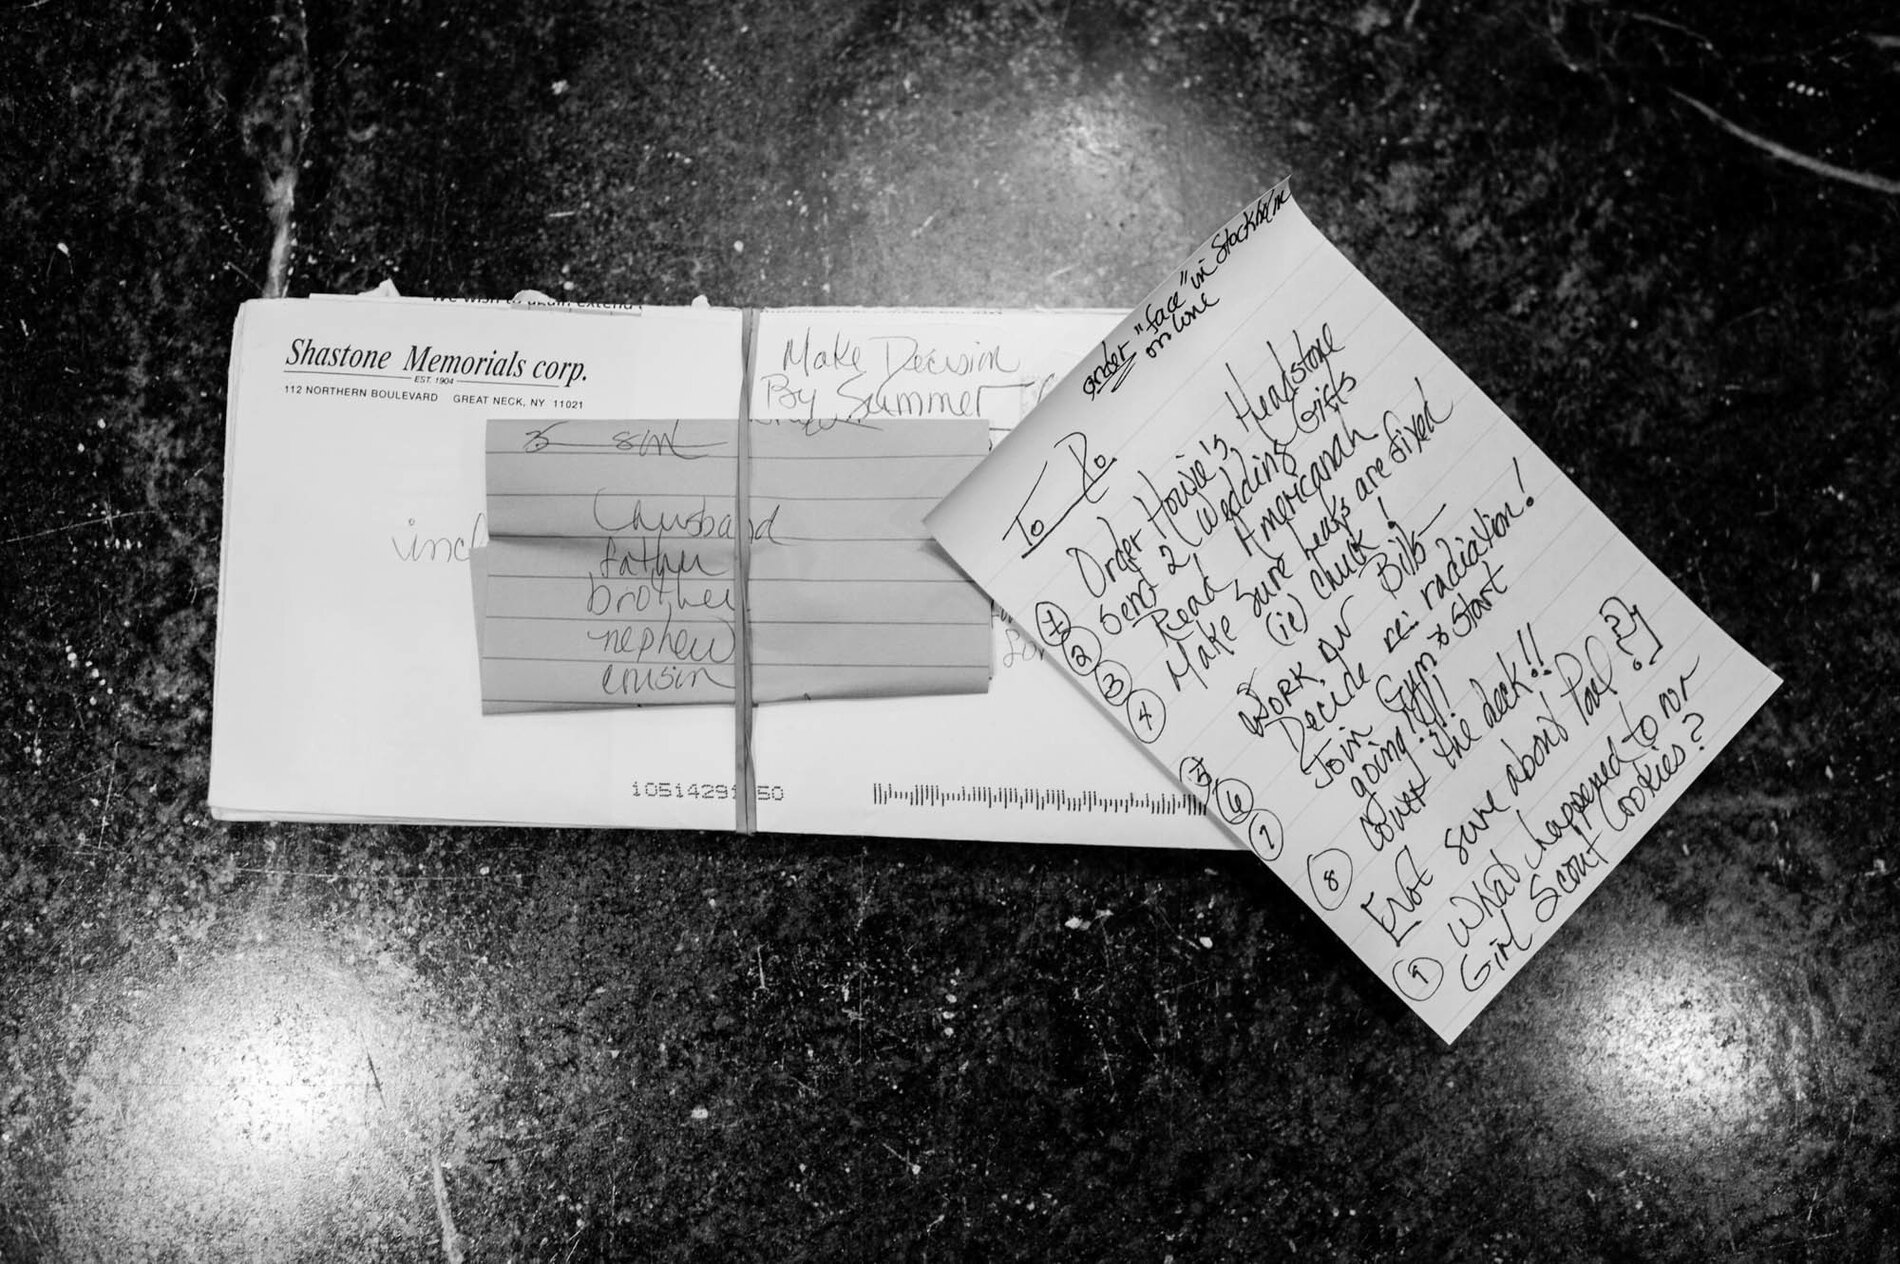 We wish to again extend
Shastone Memorials corp.
EST. 1904
112 NORTHERN BOULEVARD GREAT NECK, NY 11021
Make Decision
By Summer
son
husband
father
brother
nephew
cousin
uncl
10514291 50
order "face" in Stockholm
on line
To Do
① Order Howie's Headstone
② Send 2 Wedding Gifts
③ Read Americanah
④ Make sure leaks are fixed
(ie) chuck!
⑤ Work on Bills
⑥ Decide re: radiation!
⑦ Join Gym & Start
going!!!!
⑧ Cover the deck!!
[Not sure about Pool?]
⑨ What happened to our
Girl Scout Cookies?